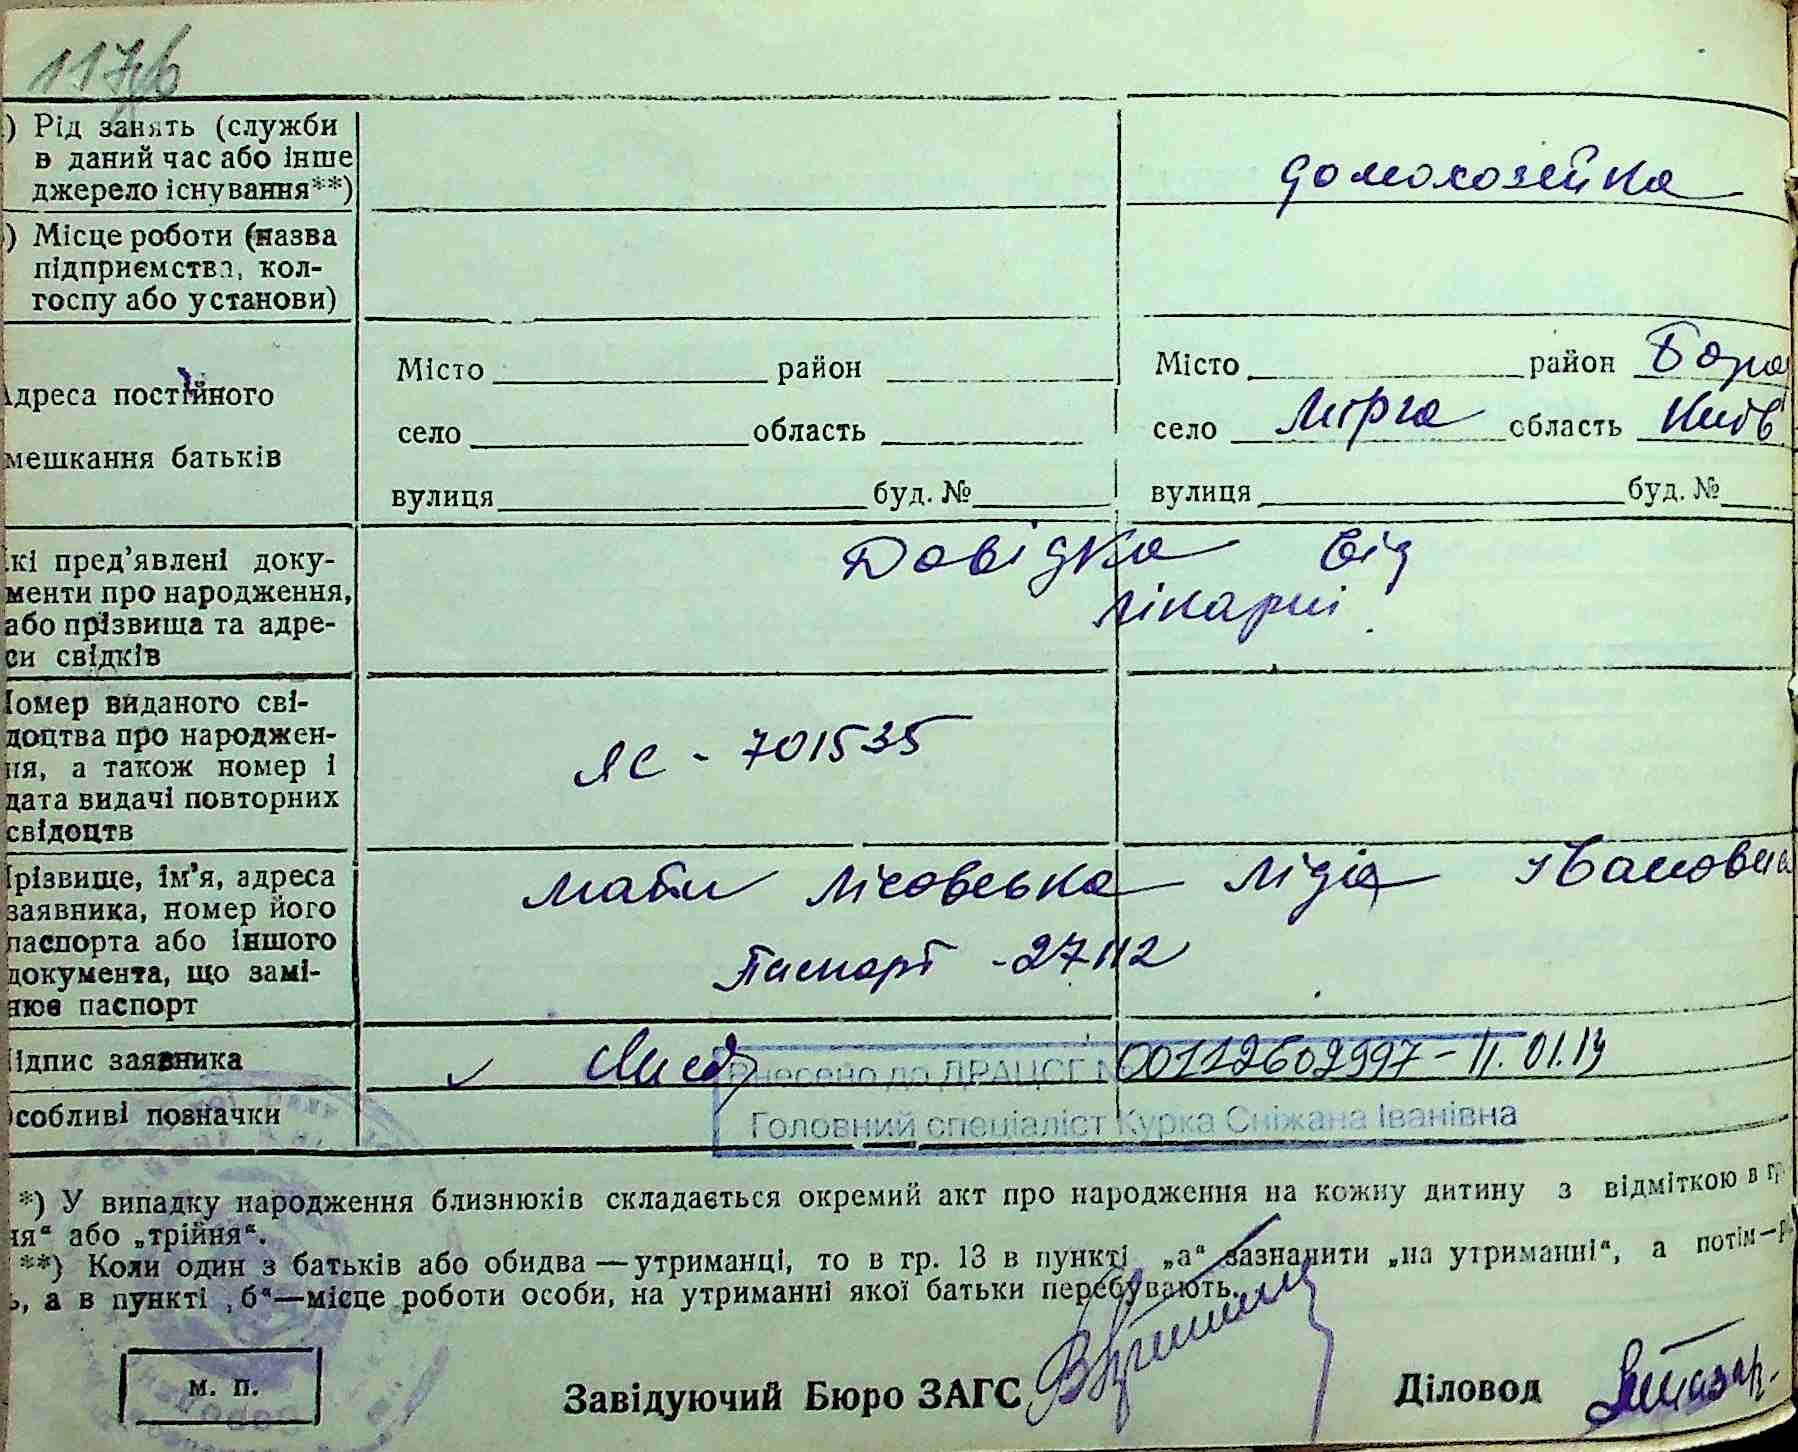 117
) Рід занять (служби
в даний час або інше
джерело існування**)
домохозейка
) Місце роботи (назва
підприємства, кол-
госпу або установи)
Адреса постійного
мешкання батьків
Місто район
село область
вулиця буд. №
Місто район Бора
село Мірча область Київ
вулиця буд. №
кі пред’явлені доку-
менти про народження,
або прізвища та адре-
си свідків
Довідка від
лікарні
Номер виданого сві-
доцтва про народжен-
ня, а також номер і
дата видачі повторних
свідоцтв
ЯС - 701535
Прізвище, ім’я, адреса
заявника, номер його
паспорта або іншого
документа, що замі-
нює паспорт
мати Лісовська Лідія Івановна
Паспорт - 27112
ідпис заявника
Внесено до ДРАЦСГ № 00112602997 - 11.01.19
собливі позначки
Головний спеціаліст Курка Сніжана Іванівна
*) У випадку народження близнюків складається окремий акт про народження на кожну дитину з відміткою в гр
ня“ або „трійня“.
**) Коли один з батьків або обидва — утриманці, то в гр. 13 в пункті „а“ зазначити „на утриманні“, а потім—р
ь, а в пункті „б“—місце роботи особи, на утриманні якої батьки перебувають.
м. п.
Завідуючий Бюро ЗАГС
Діловод